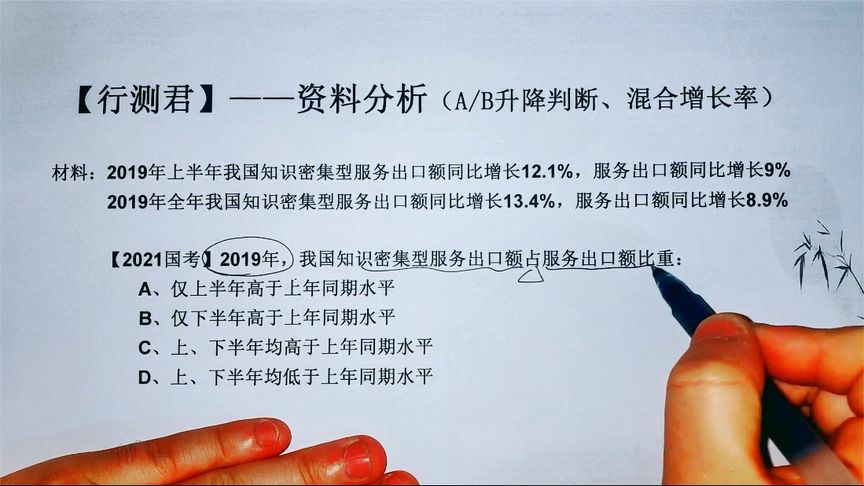 【行测君】——资料分析（A/B升降判断、混合增长率）
材料：2019年上半年我国知识密集型服务出口额同比增长12.1%，服务出口额同比增长9%
2019年全年我国知识密集型服务出口额同比增长13.4%，服务出口额同比增长8.9%
【2021国考】2019年，我国知识密集型服务出口额占服务出口额比重：
A、仅上半年高于上年同期水平
B、仅下半年高于上年同期水平
C、上、下半年均高于上年同期水平
D、上、下半年均低于上年同期水平